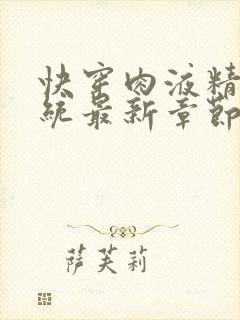 快穿肉液精
统最新章节
萨芙莉